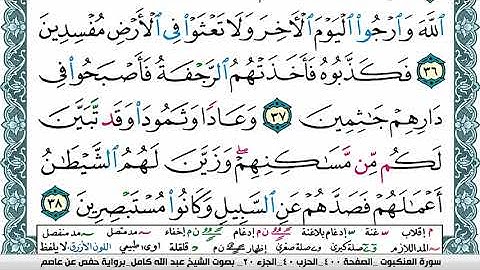 اللَّهَ وَارْجُوا الْيَوْمَ الْآخِرَ وَلَا تَعْثَوْا فِي الْأَرْضِ مُفْسِدِينَ
٣٦ فَكَذَّبُوهُ فَأَخَذَتْهُمُ الرَّجْفَةُ فَأَصْبَحُوا فِي
دَارِهِمْ جَاثِمِينَ ٣٧ وَعَادًا وَثَمُودَا وَقَد تَّبَيَّنَ
لَكُم مِّن مَّسَاكِنِهِمْ ۖ وَزَيَّنَ لَهُمُ الشَّيْطَانُ
أَعْمَالَهُمْ فَصَدَّهُمْ عَنِ السَّبِيلِ وَكَانُوا مُسْتَبْصِرِينَ ٣٨
م إقلاب س غنة س إدغام بلاغنة ن م إدغام إخفاء مد متصل مد منفصل
المد اللازم صلة كبرى صلة صغرى إظهار ن م قلقلة اوى طبيعي اللون الأزرق لا يلفظ
سورة العنكبوت _ الصفحة ٤٠٠ _ الحزب ٤٠ _ الجزء ٢٠ _ بصوت الشيخ عبد الله كامل _ برواية حفص عن عاصم